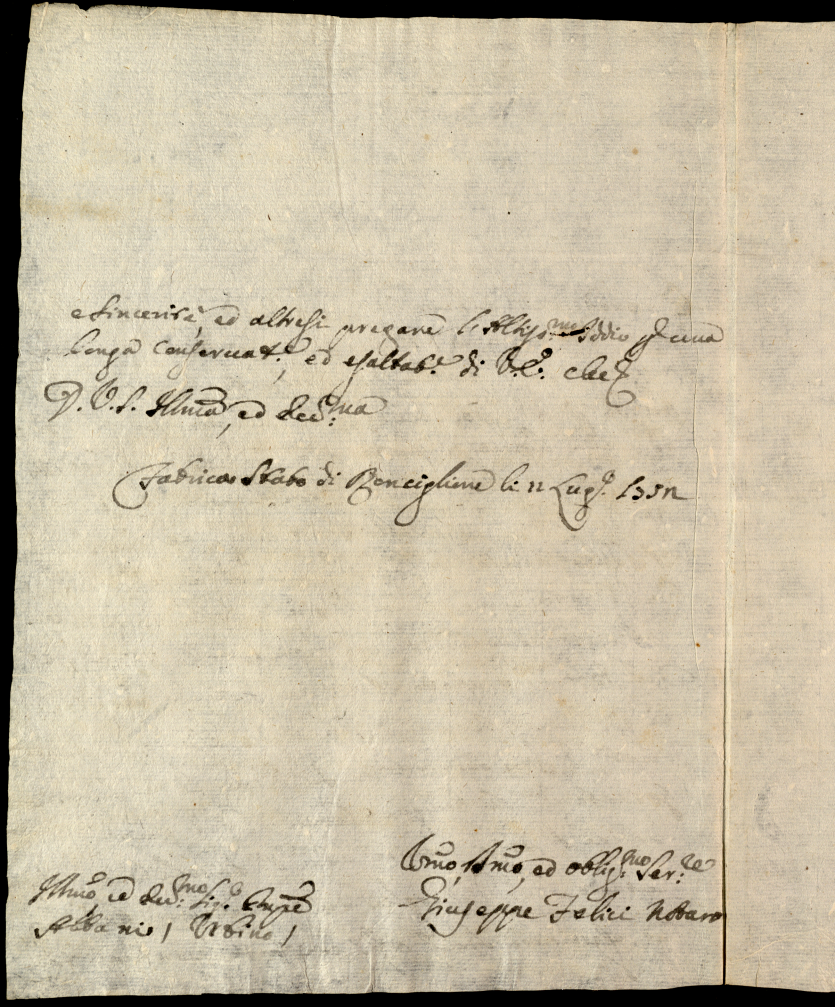 e sincerità, ed altresi pregare l'Altiss:mo Iddio p una
longa conservat:e, ed esaltat:e di V.E: che
D. V. S. Illma, ed Ecc:ma
Fabrica Stato di Ronciglione li 11 Lug:o 1751
Umo, Dmo, ed oblig:mo Ser:re
Giuseppe Felici Nottaro
Illmo, ed Ecc:mo Sig:e Cnpe
Albani, Urbino,